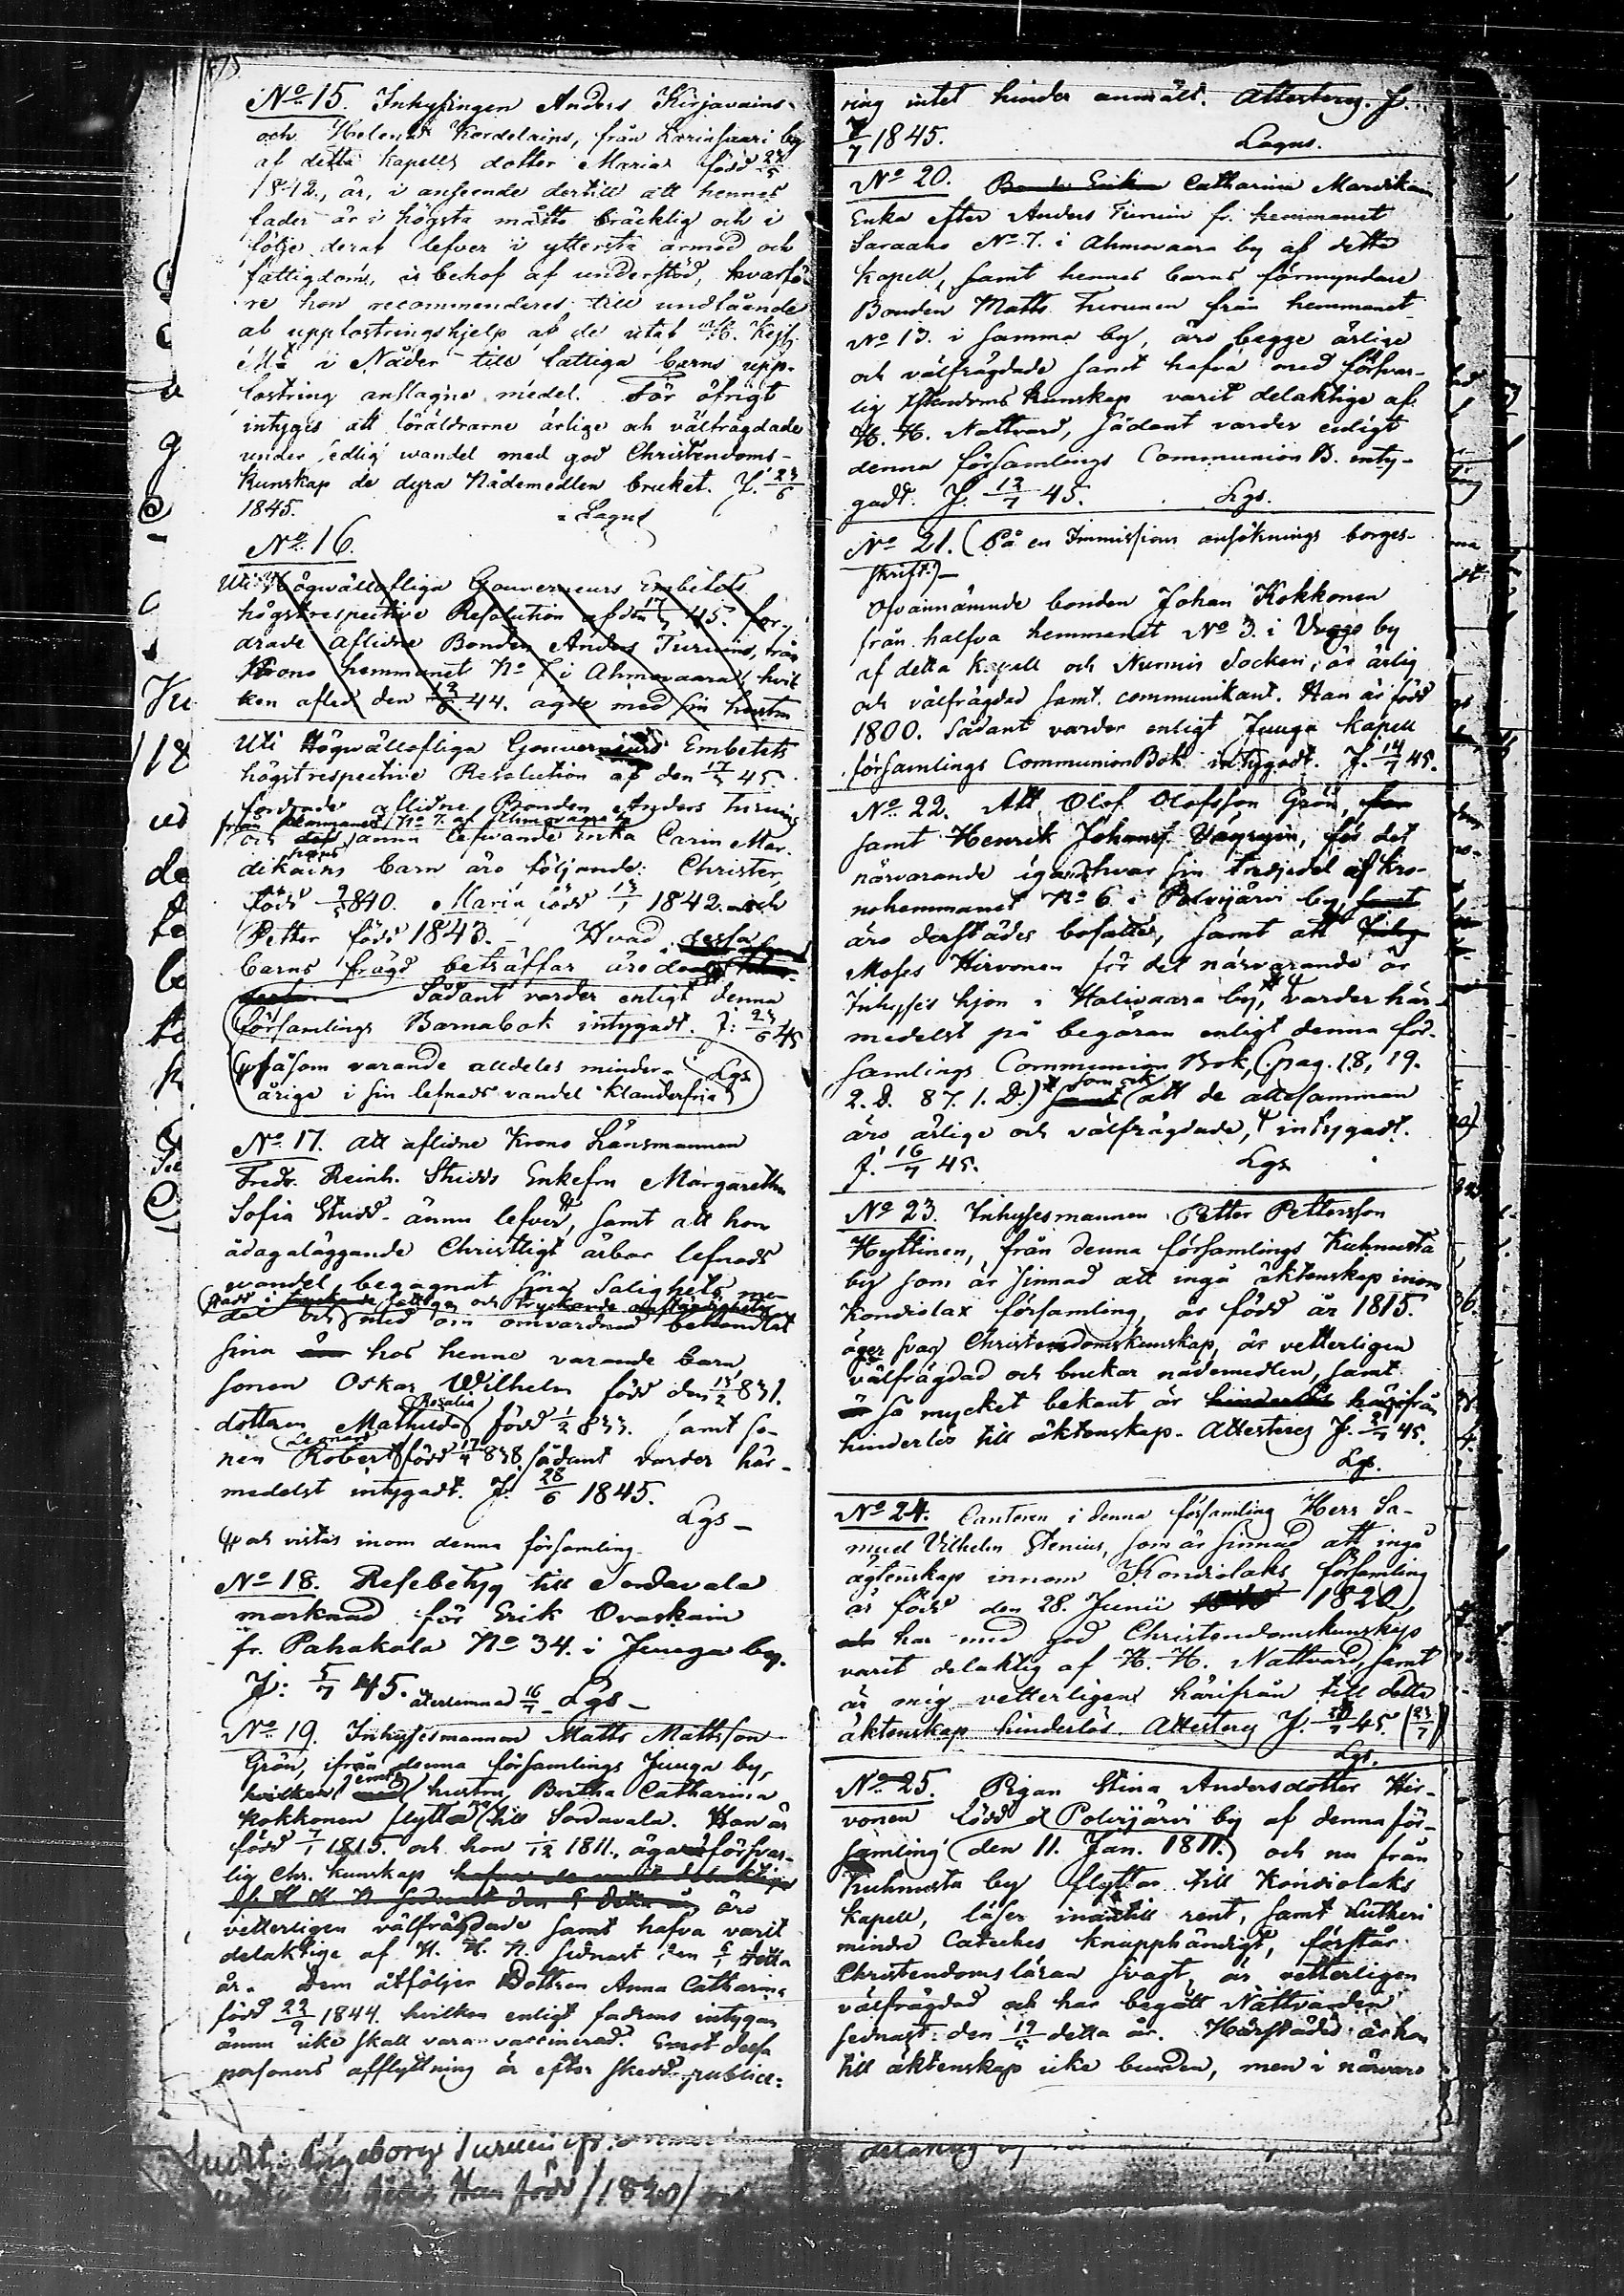 No 15. Inhysingen Anders Kirjavains
och Helena Kordelains, från Larinsaari by
af detta Kapells dotter Maria född 24/5
1842., är, i anseende dertill att hennes
fader är i högsta måtto bräcklig och i
följe deraf lefver i yttersta armod och
fattigdom, i behof af understöd, hvarfö-
re hon recommenderes till undfående
af uppfostringshjelp af de utaf H. Kejs
Mt i Nåder till fattiga barns upp-
fostring anslagna medel. För öfrigt
intyges att föräldrarne ärlige och välfrägdade
under sedlig wandel med god Christendoms-
kunskap de dyra Nådemedlen brukat. J. 23/6
1845. Lagus
No 16.
Uti Högwällofliga Gouverneurs Embetets
högstrespective Resolution af den 17/5 45. for-
drade aflidne Bonden Anders Turuins, från
Krono hemmanet No 7 i Ahmovaara, hvil
ken afled den 44. ägde med sin hustru
Uti Högwällofliga Gouverneurs Embetets
högstrespective Resolution af den 17/5 45
fordrade aflidne Bonden Anders Turuins
från hemmanet No 7. af Ahmovaara by
och dess ännu lefwande Enka Carin Mar-
dikains hans barn äro följande: Christer,
född 9/5 840. Maria född 13/1 1842. och
Petter född 1843. – Hvad dessa
barns frägd beträffar äro de
Sådant varder enligt denna
församlings Barnabok intygadt. J: 23/6 45
såsom varande alldeles minder- Lgs
årige i sin lefnads vandel klanderfria
No 17. Att aflidne Krono Länsmannen
Fredr. Reinh. Studds Enkefru Margaretha
Sofia Studd ännu lefver, samt att hon
ådagaläggande Christligt ärbar lefnads
wandel, begagnat sina Salighets me-
stadd i fattiga och tryckande
del och med öm omvårdnad behandlat
sina hos henne varande barn
sonen Oskar Wilhelm född den 13/2 831.
dottren Mathilda Rosalia född 1/2 833. samt so-
nen Robert Leonard född 17/4 838. sådant varder här-
medelst intygadt. J. 28/6 1845.
Lgs –
och vistas inom denna församling.
No 18. Resebetyg till Sordavala
marknad för Erik Ovaskain
fr. Pahakala No 34. i Juuga by.
J: 5/7 45. återlemnad 16/7 Lgs –
No 19. Inhysesmannen Matts Mattsson
Grön, ifrån denna församlings Juuga by,
hvilken jemte hustru Bertha Catharina
Kokkonen flytta till Sordavala. Han är
född 7/1 1815. och hon 1/12 1811., äga försvar-
lig Chr. kunskap
äro
vetterligen välfrägdade samt hafva varit
delaktige af H. H. N. sednast den 6/1 detta
år. Dem åtföljer Dottren Anna Catharina
född 22/9 1844. hvilken enligt fadrens intygan
ännu icke skall vara vaccinerad. Emot dessa
personers afflyttning är efter skedd publice-
ring intet hinder anmält. Attesterg. J.
7/7 1845. Lagus.
No 20. Catharina Mardikain
Enka efter Anders Turuin fr. hemmanet
Saraaho No 7. i Ahmovaara by af detta
Kapell, samt hennes barns förmyndare
Bonden Matts Turunen från hemmanet
No 13. i samma by, äro begge ärlige
och välfrägdade samt hafva med försvar-
lig Xstendoms kunskap varit delaktige af
H. H. Nattvard, sådant varder enligt
denna församlings Communion B. inty-
gadt. J. 12/7 45. Lgs.
No 21. (På en Immissions ansöknings borges-
skrift.) –
Ofvannämnde bonden Johan Kokkonen
från halfva hemmanet No 3. i Vuoge by
af detta Kapell och Nurmis Socken, är ärlig
och välfrägdad samt communikant. Han är född
1800. Sådant varder enligt Juuga Kapell
församlings CommunionBok intygadt. J. 14/7 45.
No 22. Att Olof Olofsson Grön,
samt Henrik Johanss. Väyrynin, för det
närvarande ega hvar sin tredjedel af Kro-
nohemmanet No 6 i Polvijärvi by,
äro derstädes bosatte, samt att
Moses Hirvonen för det närvarande är
Inhyses hjon i Halivaara by, varder här-
medelst på begäran enligt denna för-
samlings Communion Bok, (pag. 18, 19.
2. D. 87. 1. D.) som ock att de allesamman
äro ärlige och välfrägdade, intygadt.
J. 16/7 45. Lgs
No 23. Inhysesmannen Petter Pettersson
Hyttinen, från denna församlings Kuhnusta
by som är sinnad att ingå äktenskap inom
Kondiolax församling, är född år 1815.
äger svag Christendomskunskap, är vetterligen
välfrägdad och brukar nådemedlen, samt
så mycket bekant är härifrån
hinderlös till äktenskap. Attesterg J. 45.
Lgs.
No 24. Cantoren i denna församling Herr Sa-
muel Vilhelm Stenius, som är sinnad att ingå
ägtenskap innom Kondiolaks församling
är född den 28. Junii 1820,
har med god Christendomskunskap
varit delaktig af H. H. Nattvard, samt
är mig vetterligen härifrån till detta
äktenskap hinderlös. Attesterg J. 45. (23/7)
Lgs.
No 25. Pigan Stina Andersdotter Hir-
vonen född i Polvijärvi by af denna för-
samling (den 11. Jan. 1811.) och nu från
Kuhnusta by flyttar till Kondiolaks
kapell, läser innantill rent, samt Lutheri
mindre Cateches knapphändigt, förstår
Christendomsläran svagt, är vetterligen
välfrägdad och har begått Nattvarden
sednast den 19/5 detta år. Härstädes är hon
till äktenskap icke bunden, men i närvaro